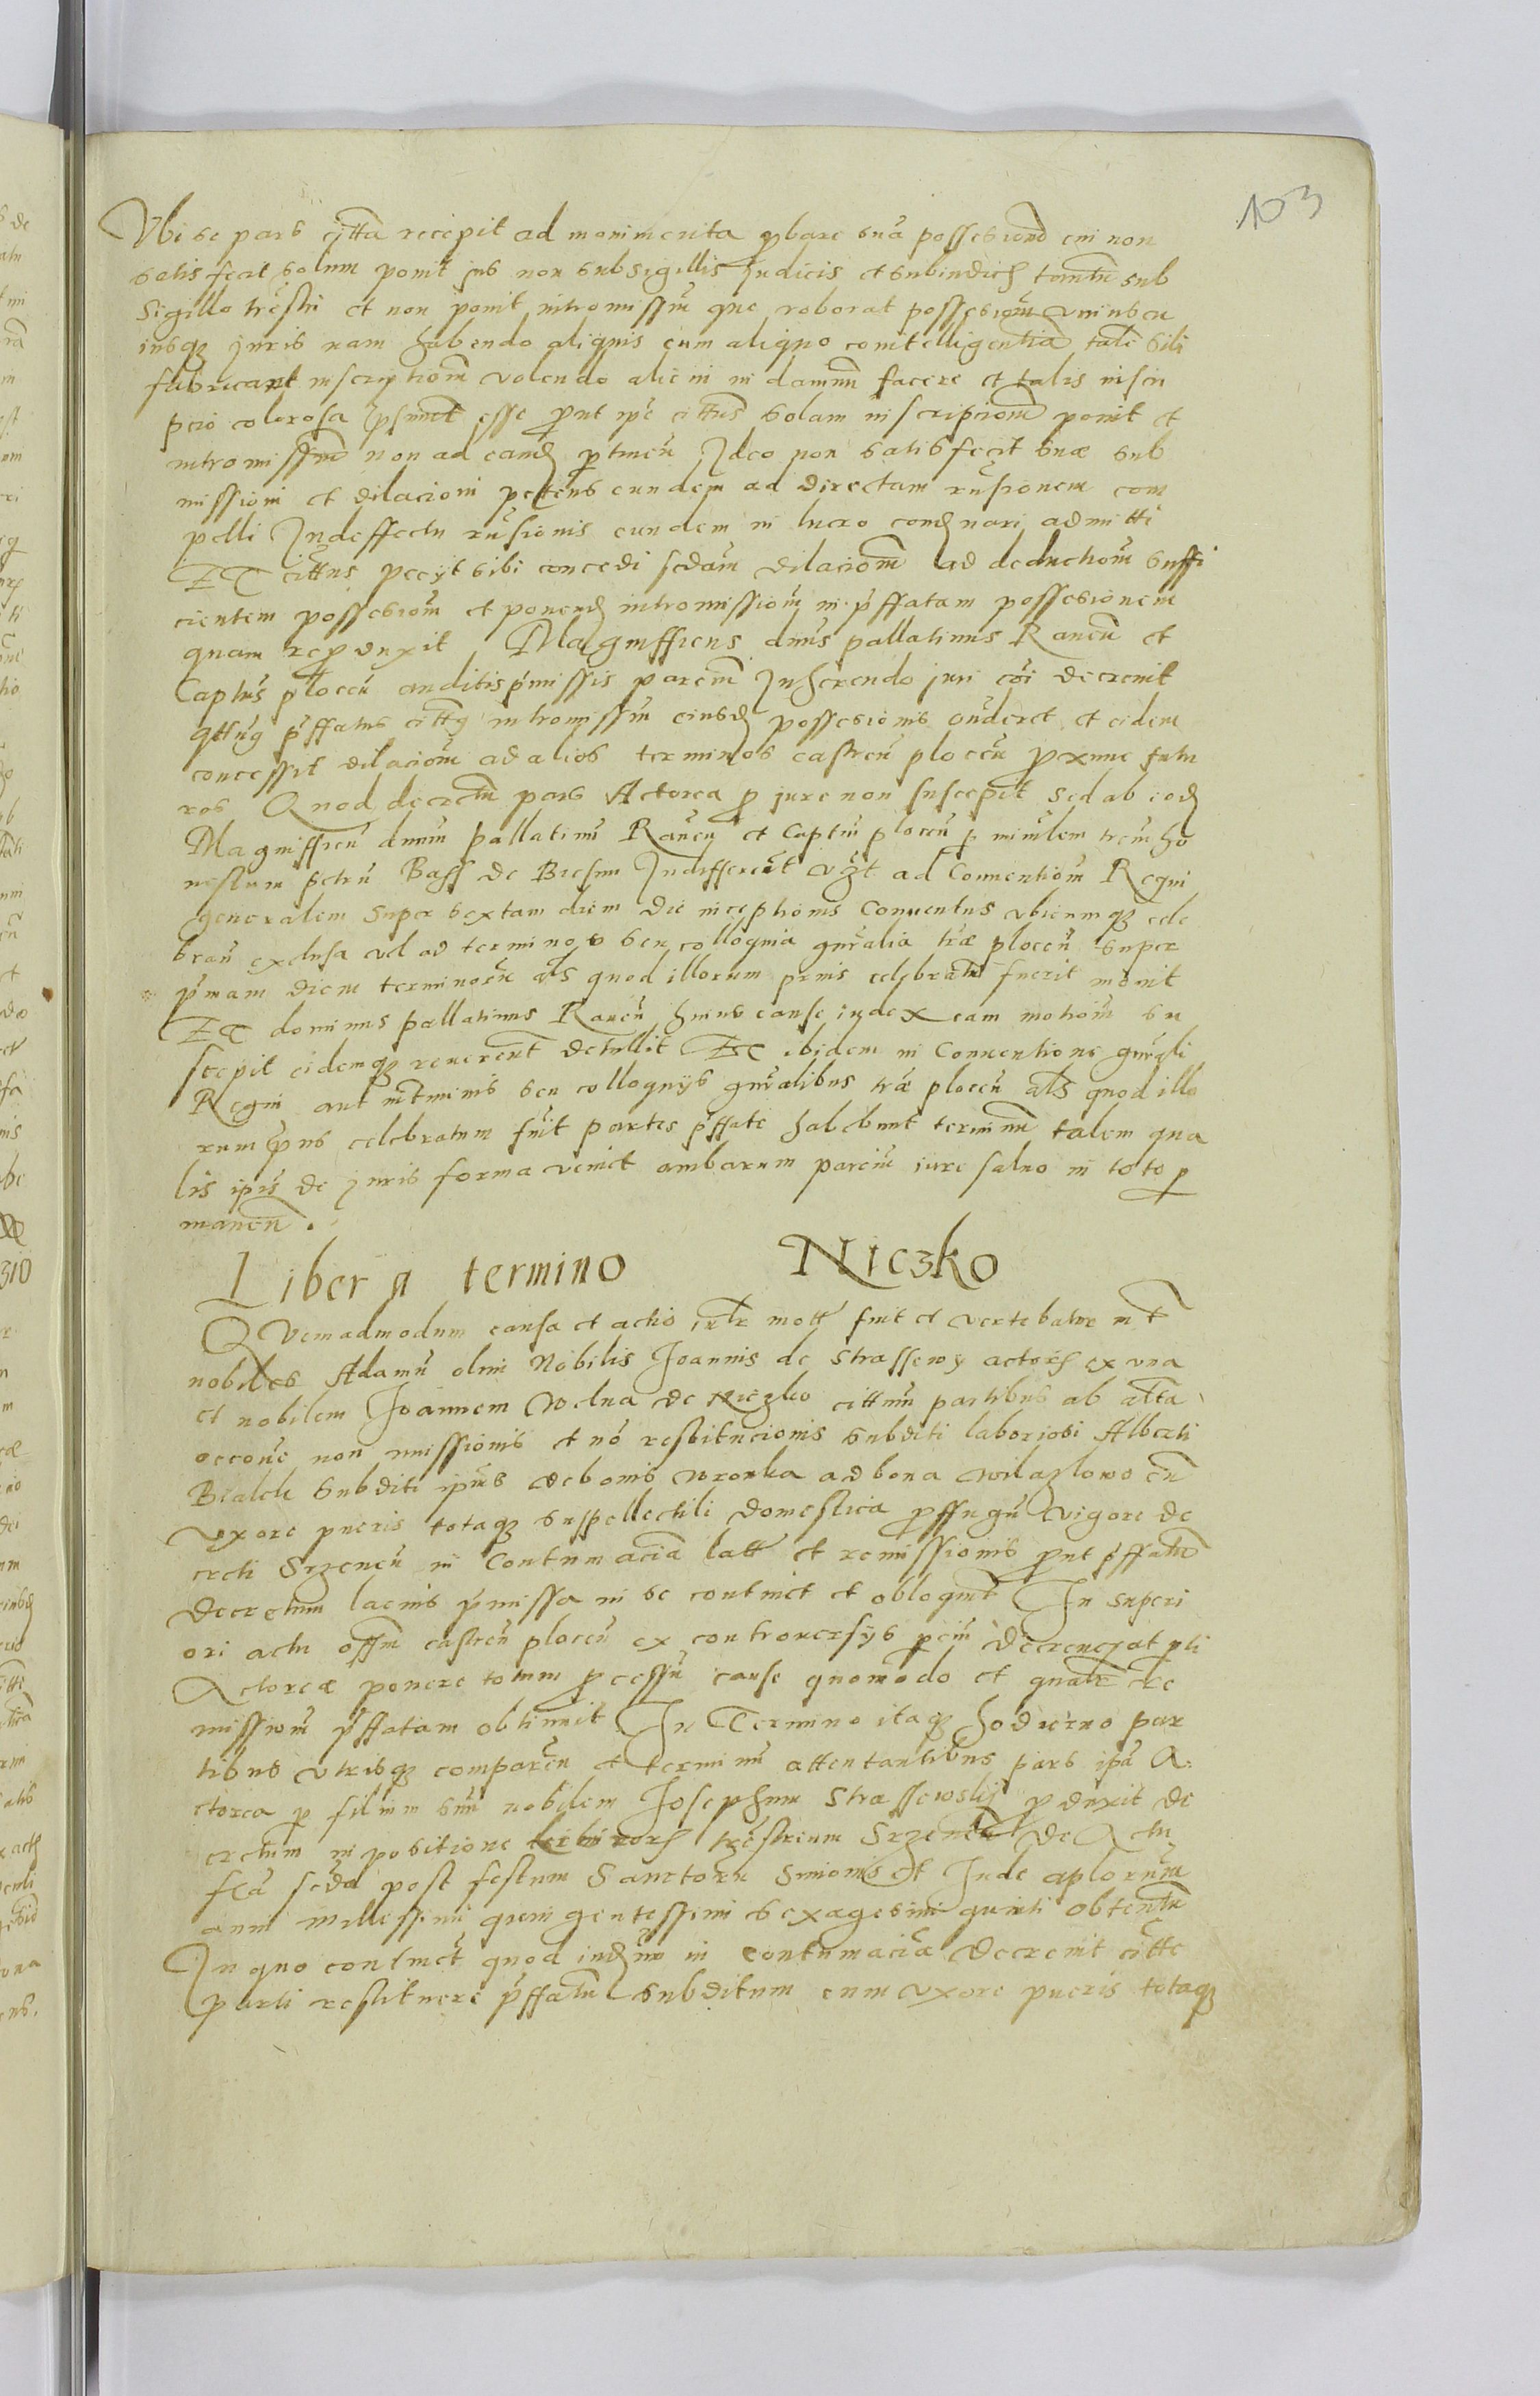 103
Vbi se pars citta recepit ad monimenta pbare sua possesiond cui non
satisfecit solum ponit jus non sub sigillis Judicis et subiudicis tantu sub
Sigillo trestri et non ponit intromissm que roborat possesiom vniuscu
iusq juris nam habendo aliquis cum aliquo conintelligentia tale sibi
fabricant inscriptiom volendo alicui in damnu facere et talis inscri
pcio colorosa psumit esse put ipe cittus solam inscripciom ponit et
intromissm non ad eand ptinen Ideo non satisfecit suae sub
missioni et dilacioni petens eundem ad directam rnsionem com
pelli Indeffectu rnsionis eundem in lucro condnari admitti
ET cittus peciit sibi concedi sedam dilaciom ad deductiom suffi
cientem possesiom et ponend intromissiom in pffatam possesionem
quam repduxit Magnifficus dnus pallatinus Rauen et
Captus plocen auditis pmissis parcium Inherendo juri coi decreuit
qttus pffatus citts intromissm eiusd possesionis onderet et eidem
concessit dilaciom ad alios terminos castren plocen pxime futu
ros Quod decretum pars Actorea p jure non suscepit sed ab eod
Magniffico dnum pallatinu Rauen et Captm plocen p minlem trem ho
nestum petru Bass de Biesun Indifferent vzt ad Conuentiom Regni
generalem super sextam diem die inceptionis Conuentus vbicumq cele
bran exclusa vel ad terminos seu colloquia gnralia trae plocen super
pmam diem terminoru als quod illorum prius celebratu fuerit mouit
ET dominus pallatinus Rauen huius cause iudex eam motiom su
scepit eidemq reuerent detullit Et ibidem in Conuentione gnrali
Regni aut in tminis seu colloquijs gnralibus trae plocen als quod illo
rum prius celebratum fuit partes pffate habebunt terminu talem qua
lis ipis de juris forma veniet ambarum parciu iure saluo in toto p
manen.
Libera termino Niczko
QVemadmodum causa et actio iter mott fuit et vertebatur int
nobiles Adamu olim Nobilis Joannis de Strassewy actore ex vna
et nobilem Joannem Welna de Niczko cittum partibus ab alta
occone non missionis et no restitucionis subditi laboriosi Alberti
Bialek subditi ipius de bonis Wronka ad bona Wilazlowo cu
vxore pueris totaq suppellectili domestica pffugu vigore de
creti Srzenen in Contumacia latt et remissionis put pffatu
decretum lacius pmissa in se continet et obloquit In superi
ori actu offm castren plocen ex controuersijs pciu decreuerat pti
Actoreae ponere totum pcessu cause quomodo et qualr re
missiom pffatam obtinuit In Termino itaq hodierno par
tibus vtrisq comparen et terminu attentantibus pars ipa A
ctorea p filium suu nobilem Josephum Strassewskij pduxit de
cretum in positione terminors trestrium Srzenen de Actu
fcia seda post festum Sanctoru Simonis et Jude aplorum
anni millessimi quingentessimi sexagesimi quinti obtentu
In quo continet quod iudm in contumacia decreuit citte
parti restituere pffatu subditum cum vxore pueris totaq